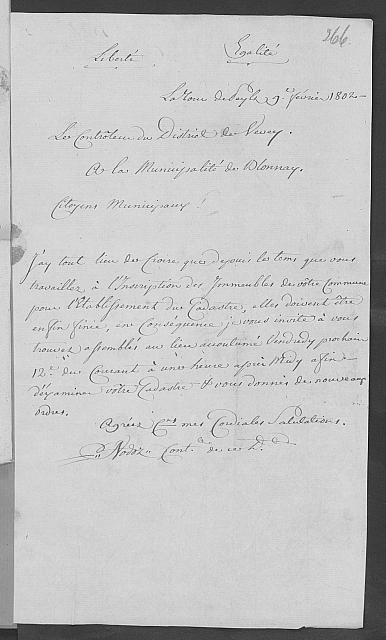 266
Liberté Egalité
La Tour de Peylz 9.e février 1802 —
Le Contrôleur du District de Vevey.
A la Municipalité de Blonnay.
Citoyens Municipaux !
J'ay tout lieu de Croire que depuis le tems que vous
travaillez à l'Inscription des Immeubles de vôtre Commune
pour l'Etablissement du Cadastre, elles doivent être
enfin finie, en Conséquence je vous invite à vous
trouver assemblés au lieu accoutumé Vendredy prochain
12.e du Courant à une heure après Midy afin
d'éxaminer vôtre Cadastre & vous donner de nouveaux
ordres.
Agréez C.ns mes Cordiales Salutations.
Nodoz Cont.r de ce D.